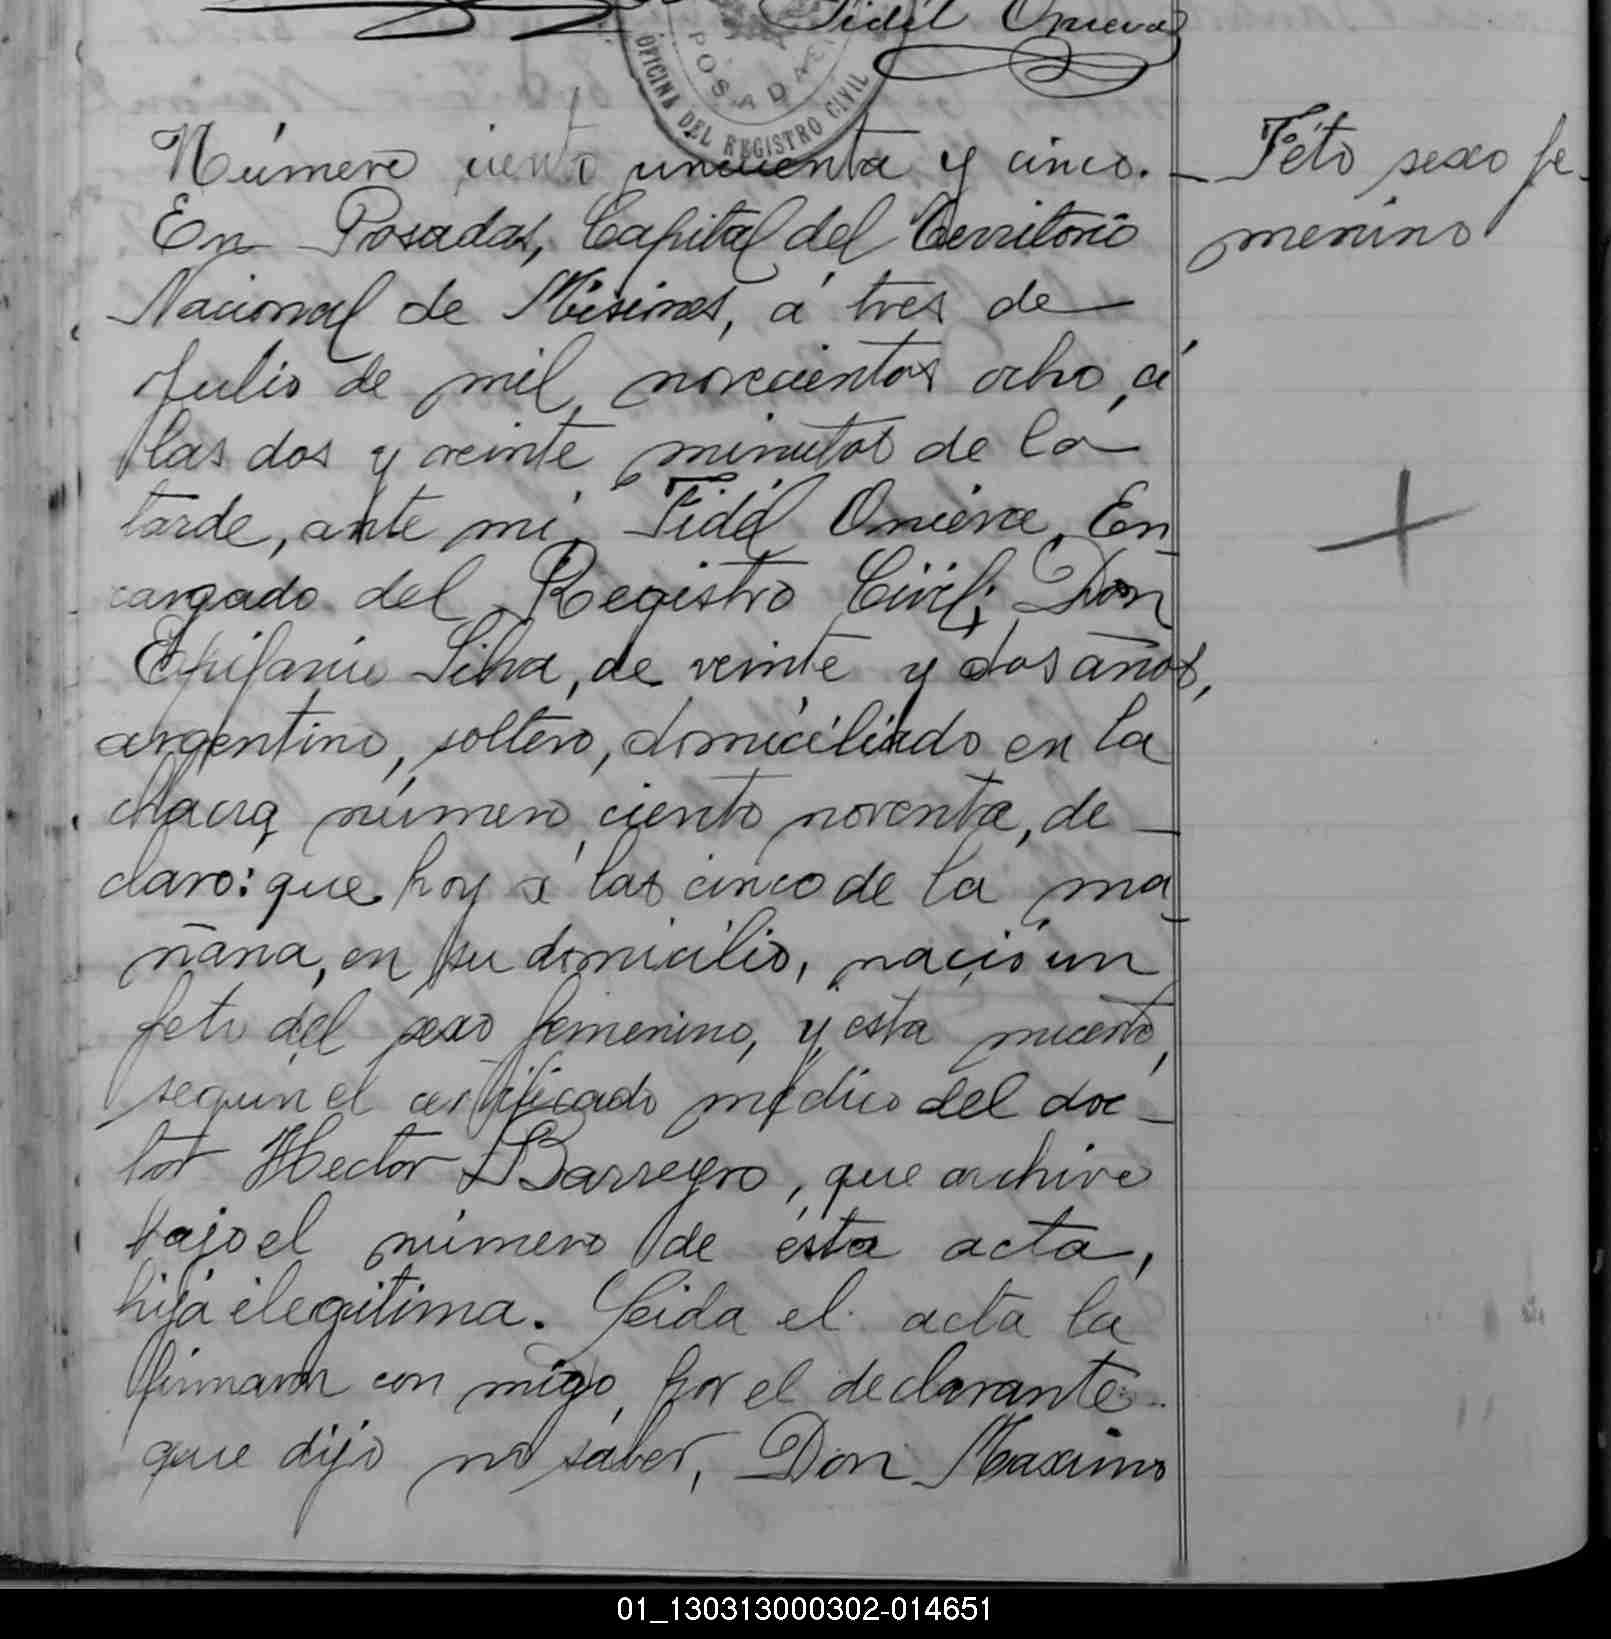 Fidel Onieva
POSADAS
OFICINA DEL REGISTRO CIVIL
Número ciento cincuenta y cinco.
Feto sexo fe-
menino
En Posadas, Capital del Territorio
Nacional de Misiones, á tres de
Julio de mil novecientos ocho, á
las dos y veinte minutos de la
tarde, ante mi, Fidel Onieva, En
cargado del Registro Civil; Don
Epifanio Silva, de veinte y dos años,
argentino, soltero, domiciliado en la
chacra número ciento noventa, de-
claro: que hoy á las cinco de la ma
ñana, en su domicilio, nació un
feto del sexo femenino, y esta muerto,
según el certificado médico del doc-
tor Hector Barreyro, que archivo
bajo el número de ésta acta,
hija elegitima. Leida el acta la
firmaron con migo, por el declarante
que dijo no saber, Don Maximo
01_130313000302-014651